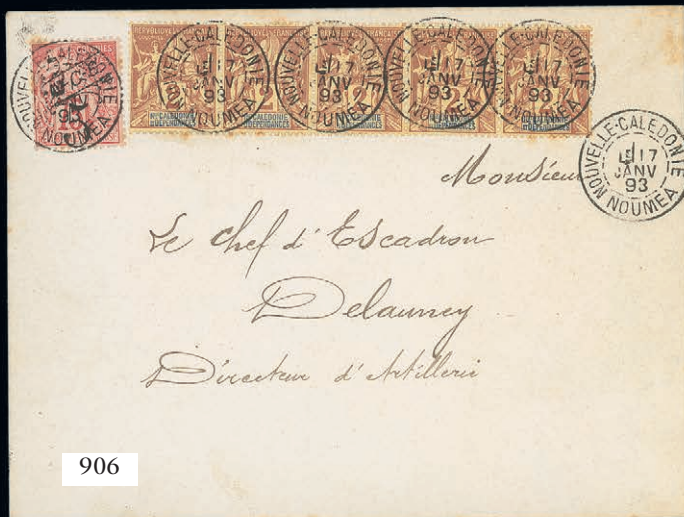 COLONIES
REPUBLIQUE FRANCAISE
NOUVELLE-CALEDONIE
17
JANV
93
NOUMEA
NOUVELLE-CALEDONIE
17
JANV
93
NOUMEA
NOUVELLE-CALEDONIE
17
JANV
93
NOUMEA
NOUVELLE-CALEDONIE
17
JANV
93
NOUMEA
NOUVELLE-CALEDONIE
17
JANV
93
NOUMEA
Monsieur
Le Chef d'Escadron
Delauney
Directeur d'Artillerie
906